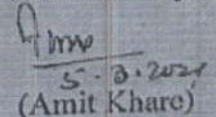 5.3.2021
(Amit Khare)